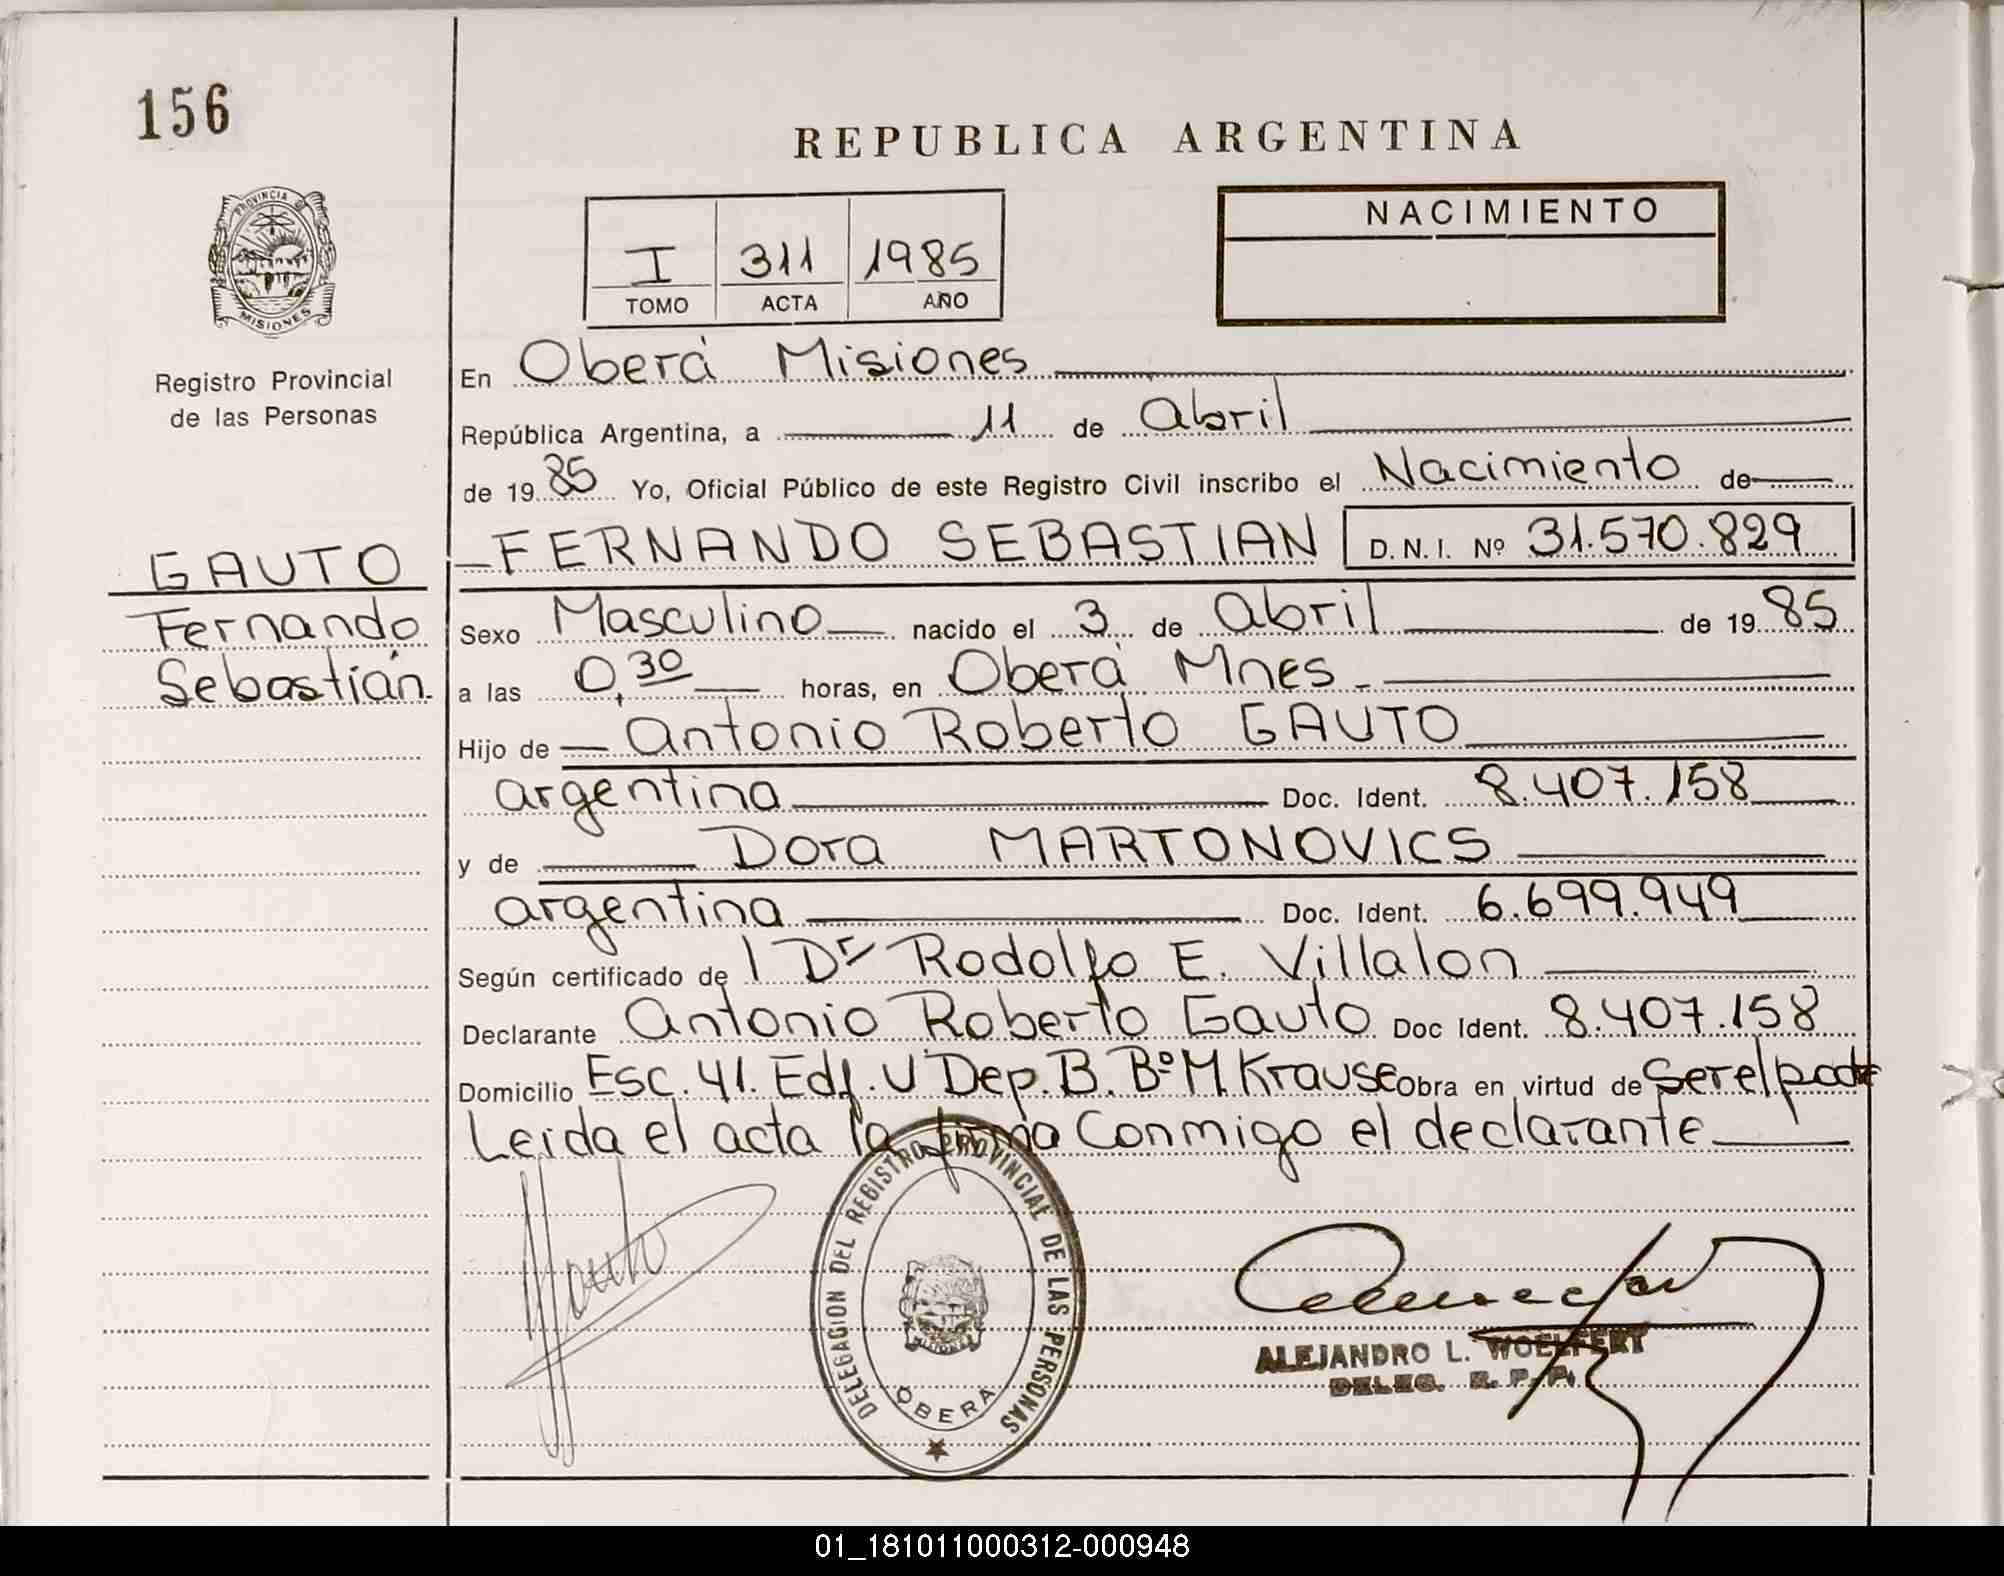 156
REPUBLICA ARGENTINA
PROVINCIA DE
MISIONES
Registro Provincial
de las Personas
I 311 1985
TOMO ACTA AÑO
NACIMIENTO
En Oberá Misiones
República Argentina, a 11 de Abril
de 1985 Yo, Oficial Público de este Registro Civil inscribo el Nacimiento de
GAUTO
Fernando
Sebastián.
FERNANDO SEBASTIAN D.N.I. Nº 31.570.829
Sexo Masculino nacido el 3 de Abril de 1985
a las 0,30 horas, en Oberá Mnes
Hijo de Antonio Roberto GAUTO
argentina Doc. Ident. 8.407.158
y de Dora MARTONOVICS
argentina Doc. Ident. 6.699.949
Según certificado de l Dr Rodolfo E. Villalon
Declarante Antonio Roberto Gauto Doc Ident. 8.407.158
Domicilio Esc. 41. Edf. U Dep. B. Bº M. Krause obra en virtud de Ser el padre
Leida el acta la firma Conmigo el declarante
Gauto
DELEGACION DEL REGISTRO PROVINCIAL DE LAS PERSONAS
OBERA
ALEJANDRO L. WOELFERT
DELEG. R. P. P.
01_181011000312-000948